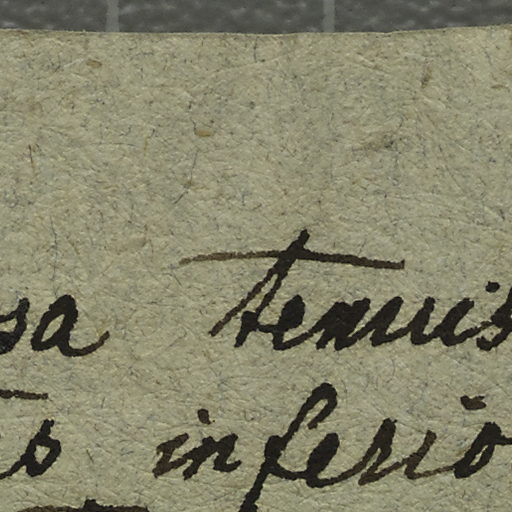 sa tenuis
is inferio